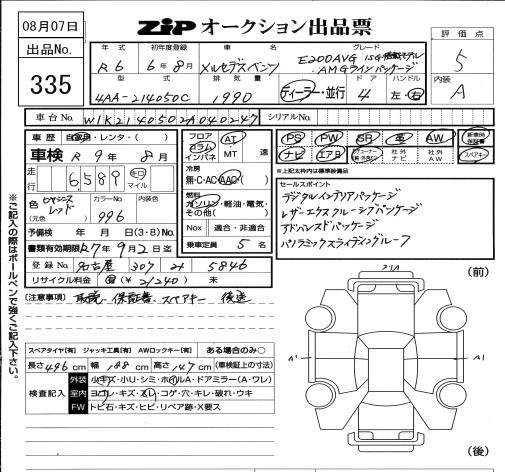 08月07日
出品No.
335
ZIP オークション出品票
評価点
5
内装
A
年式 初年度登録 車名 グレード
R6 6年8月 メルセデスベンツ E200AVG ISG搭載モデル
AMGラインパッケージ
型式 排気量 ドア ハンドル
4AA-214050C 1990 ディーラー・並行 4 左・右
車台No. W1K2140502A040247 シリアルNo.
車歴 自家用・レンタ・( )
車検 R9年8月
走行 6,589 キロ マイル
色 (元色) レッド カラーNo. 996 内装色
予備検 年 月 日(3・8)No.
書類有効期限 R7年9月2日迄
登録No. 名古屋 307 ス 5846
リサイクル料金 有(¥21240) 未
フロア コラム インパネ AT・MT 速
冷房 無・C・AC・AAC
燃料 ガソリン・軽油・電気・その他( )
Nox 適合・非適合
乗車定員 5 名
PS PW SR 革 AW 新車時保証書
ナビ エアB 社外ナビ 社外AW スペアキー
※上記太枠内は標準装備品
セールスポイント
デジタルインテリアパッケージ
レザーエクスクルーシブパッケージ
アドバンスドパッケージ
パノラミックスライディングルーフ
(注意事項) 取説、保証書、スペアキー 後送
スペアタイヤ[有] ジャッキ工具[有] AWロックキー[有] ある場合のみ○
長さ 496 cm 幅 188 cm 高さ 147 cm (車検証上の寸法)
検査記入
外装 小キズ・小リ・シミ・ホイルA・ドアミラー(A・ワレ)
室内 ヨゴレ・キズ・スレ・コゲ・穴・キレ・破れ・ウキ
FW トビ石・キズ・ヒビ・リペア跡・X要ス
(前)
A1
A1
(後)
※ご記入の際はボールペンで強くご記入下さい。